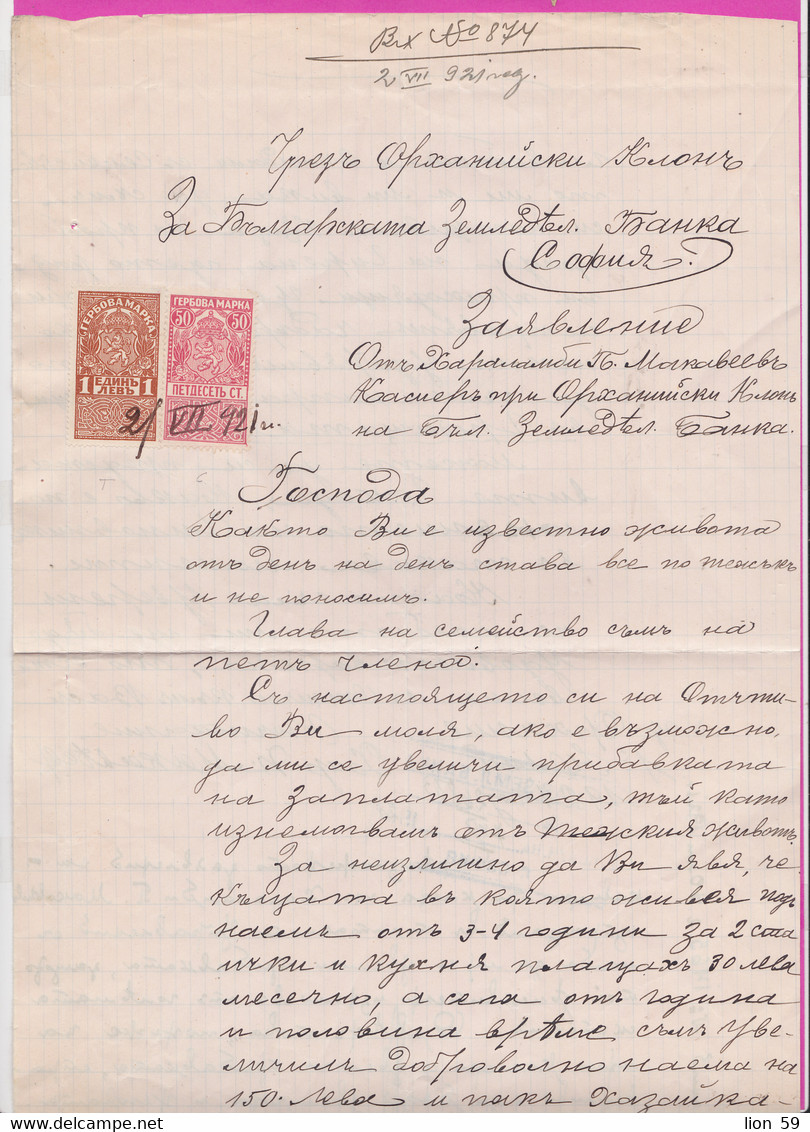 Вх №874
2 VII 921 год.
Чрезъ Орханийски Клонъ
За Българската Земледѣл. Банка
София.
ГЕРБОВА МАРКА
1 ЕДИНЪ ЛЕВЪ 1
ГЕРБОВА МАРКА
50 50
ПЕТДЕСЕТЬ СТ.
2/ VII 921 г.
Заявление
Отъ Хараламби П. Макавеевъ
Касиеръ при Орханийски Клонъ
на Бъл. Земледѣл. Банка.
Господа
Както Ви е известно живота
отъ день на день става все по тежъкъ
и не поносимъ.
Глава на семейство съмъ на
петъ члена.
Съ настоящето си на
во Ви моля, ако е възможно,
да ми се увеличи прибавката
на заплатата, тъй като
изнемогвамъ отъ тежкия животъ.
За неизлишно да Ви явя, че
къщата въ която живея подъ
наемъ отъ 3-4 години за 2 ста
ички и кухня плащахъ 30 лева
месечно, а сега отъ година
и половина врѣме съмъ уве-
личилъ доброволно наема на
150 лева и пакъ хазайка-
lion 59